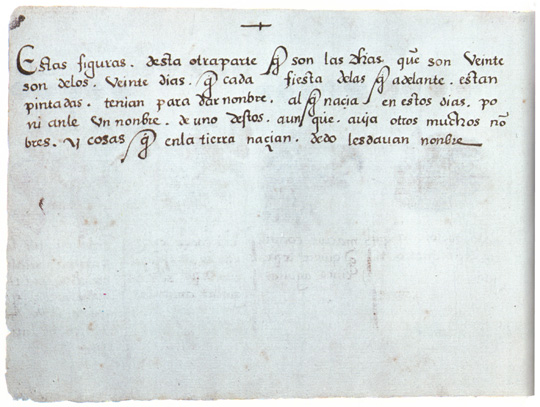 Estas figuras. desta otra parte q̃ son las dhas que son Veinte
son delos. Veinte dias. q̃ cada fiesta delas q̃ adelante. estan
pintadas. tenian para dar nonbre. al q̃ naçia en estos dias. po
ni anle Un nonbre. de uno destos. aun que. auja otros muchos nõ
bres. y cosas q̃ enla tierra naçian. dedo lesdauan nonbre